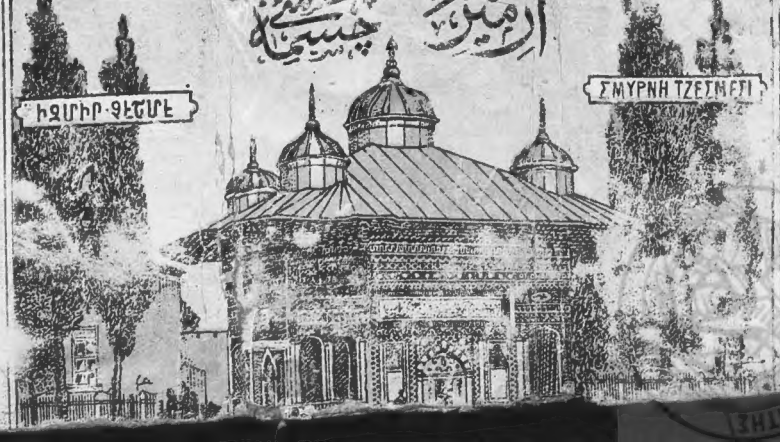 ازمير
چشمه
ԻԶՄԻՐ·ՉԷՇՄԷ
ΣΜΥΡΝΗ ΤΖΕΣΜΕΣΙ